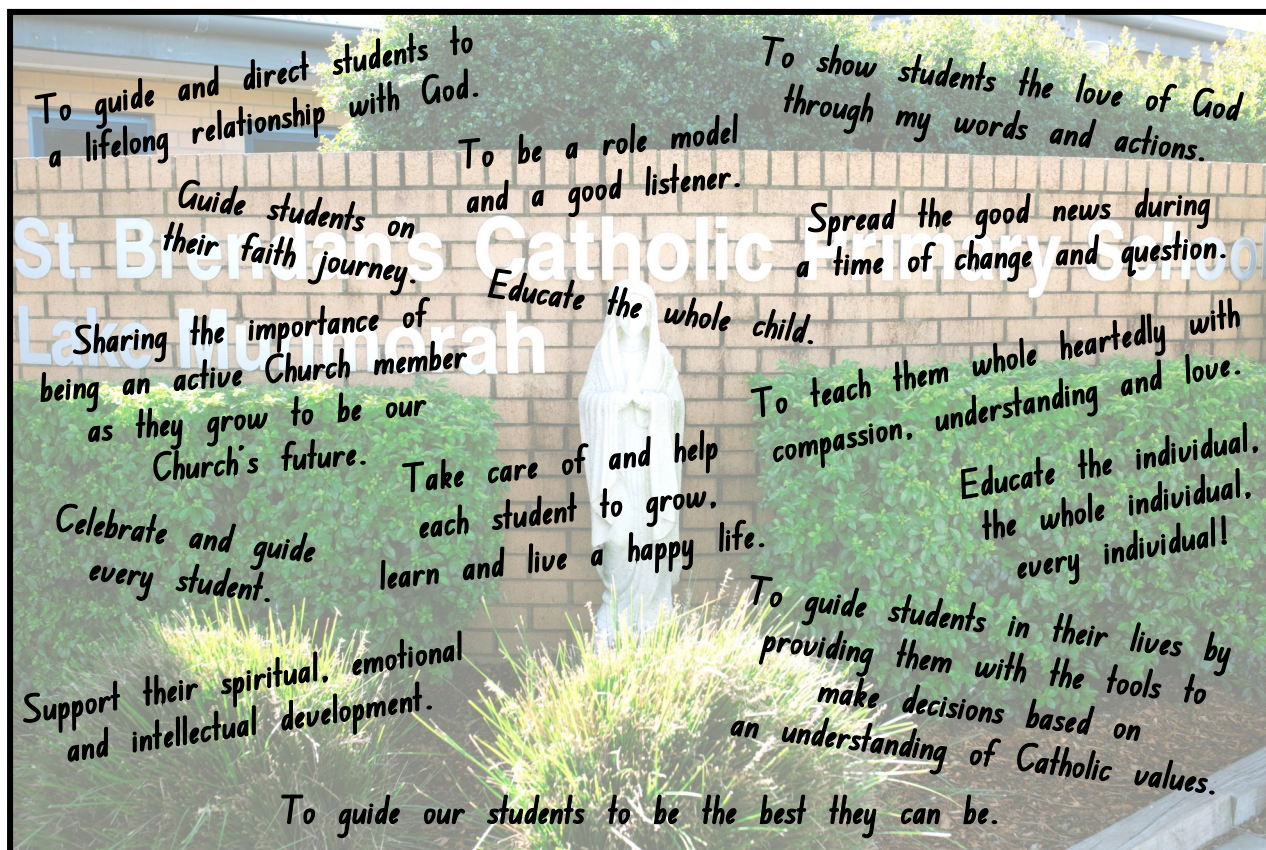 To guide and direct students to
a lifelong relationship with God.
To show students the love of God
through my words and actions.
To be a role model
and a good listener.
Guide students on
their faith journey.
Spread the good news during
a time of change and question.
St. Brendan's Catholic Primary School
Lake Munmorah
Educate the whole child.
Sharing the importance of
being an active Church member
as they grow to be our
Church's future.
To teach them whole heartedly with
compassion, understanding and love.
Take care of and help
each student to grow,
learn and live a happy life.
Educate the individual,
the whole individual,
every individual!
Celebrate and guide
every student.
To guide students in their lives by
providing them with the tools to
make decisions based on
an understanding of Catholic values.
Support their spiritual, emotional
and intellectual development.
To guide our students to be the best they can be.